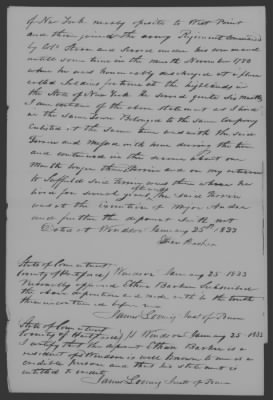 of New York nearly opposite to West Point
and then joined the army Regiment Commanded
by Col and served under his command
untill some time in the month November 1780
when he was honorably discharged at a place
called Soldiers fortune at the highlands in
the State of New York. He served quite Six months,
I am certain of the above statement as I lived
in the same Town Belonged to the same Company
Enlisted at the same time and with the said
and with him during the time
and continued in the service about one
Month longer than and on my return
to Suffield said was there where he
had for several years, the said
was at the Execution of Major Andre
and further the deponent saith not
Dated at Windsor January 25th 1833
State of Connecticut
County of Hartford Windsor January 25 1833
Personally appeared Ethan Subscribed
the above deposition and made oath to the truth
before me
James Loomis Just of Peace
State of Connecticut
County of Hartford Windsor January 25 1833
I certify that the deponent Ethan is a
resident of Windsor is well known to me is a
credible person and that his statement is
entitled to credit
James Loomis Just of Peace